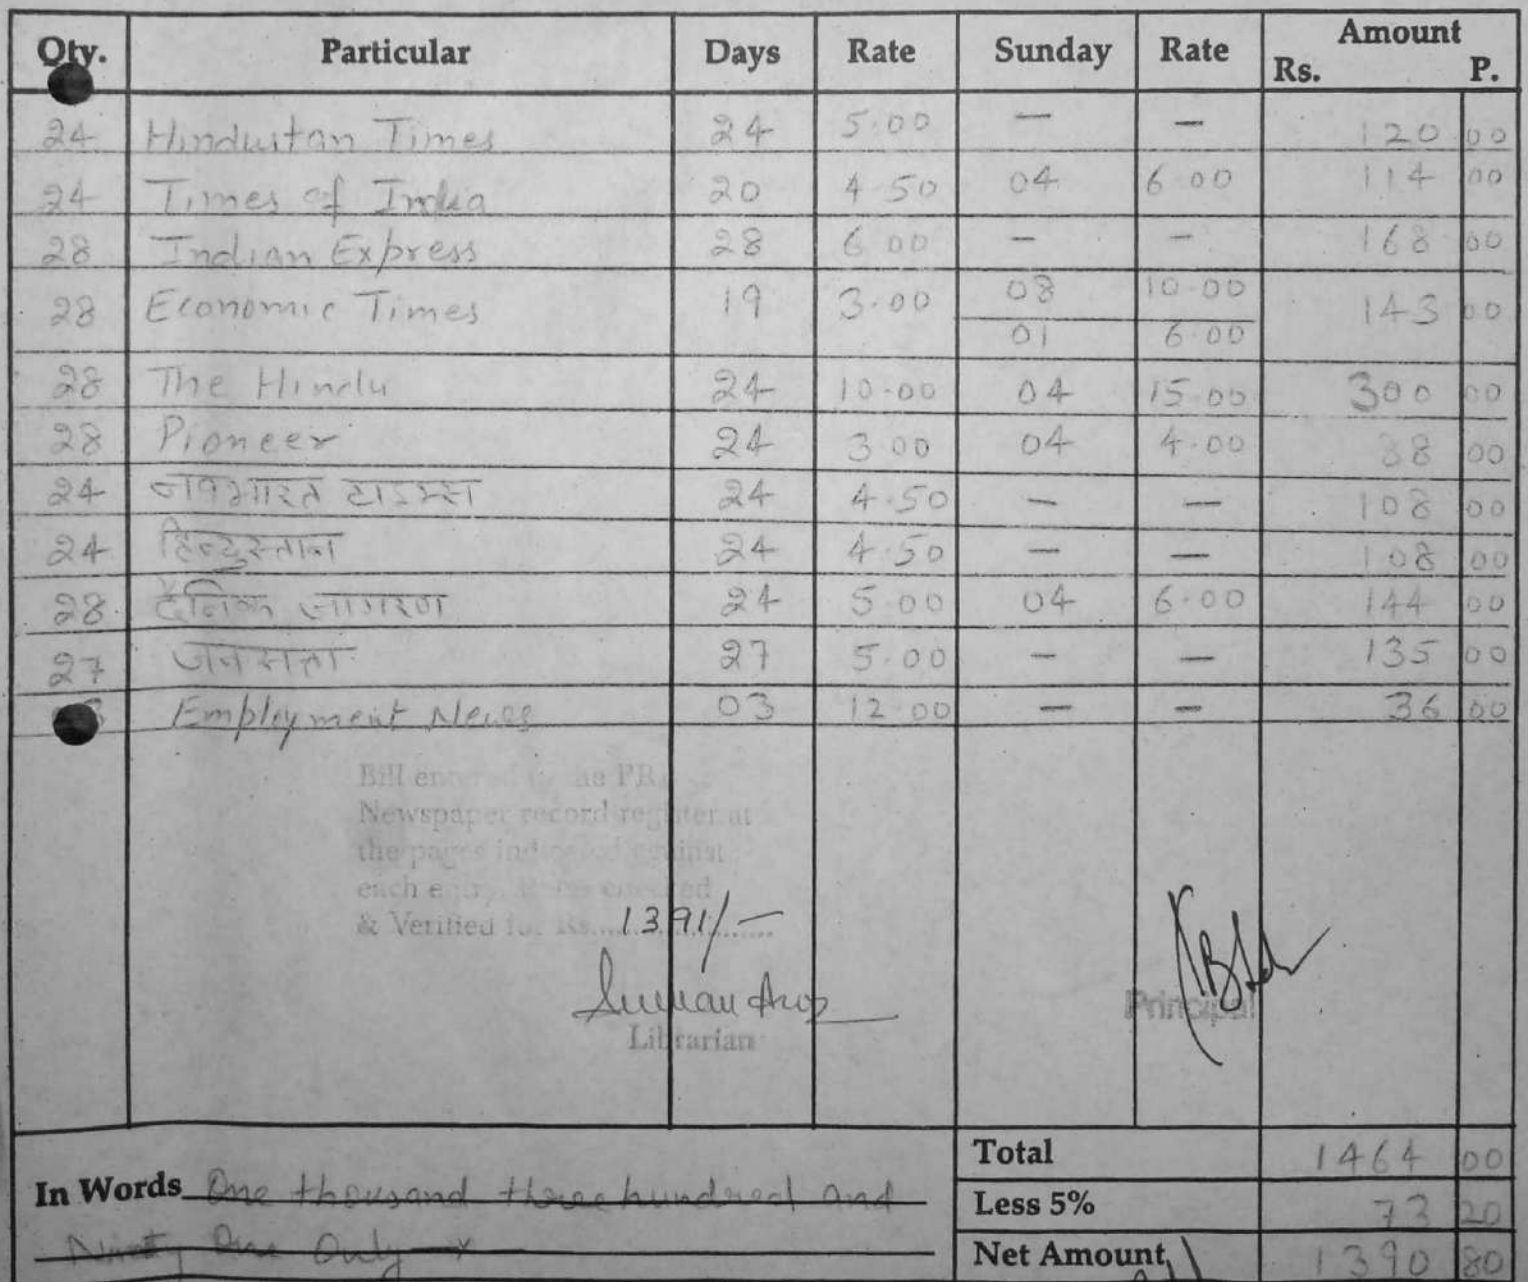 Qty. Particular Days Rate Sunday Rate Amount
Rs. P.
24 Hindustan Times 24 5.00 — — 120 00
24 Times of India 20 4.50 04 6.00 114 00
28 Indian Express 28 6.00 — — 168 00
28 Economic Times 19 3.00 08 10.00 143 00
01 6.00
28 The Hindu 24 10.00 04 15.00 300 00
28 Pioneer 24 3.00 04 4.00 88 00
24 नवभारत टाइम्स 24 4.50 — — 108 00
24 हिन्दुस्तान 24 4.50 — — 108 00
28 दैनिक जागरण 24 5.00 04 6.00 144 00
27 जनसत्ता 27 5.00 — — 135 00
Employment News 03 12.00 — — 36 00
Bill entered in the PR.
Newspaper record register at
the pages indicated against
each entry. Rates checked
& Verified for Rs. 1391/—
Suman
Librarian
Principal
Total 1464 00
In Words One thousand three hundred and
Less 5% 73 20
Ninety One Only — x
Net Amount 1390 80